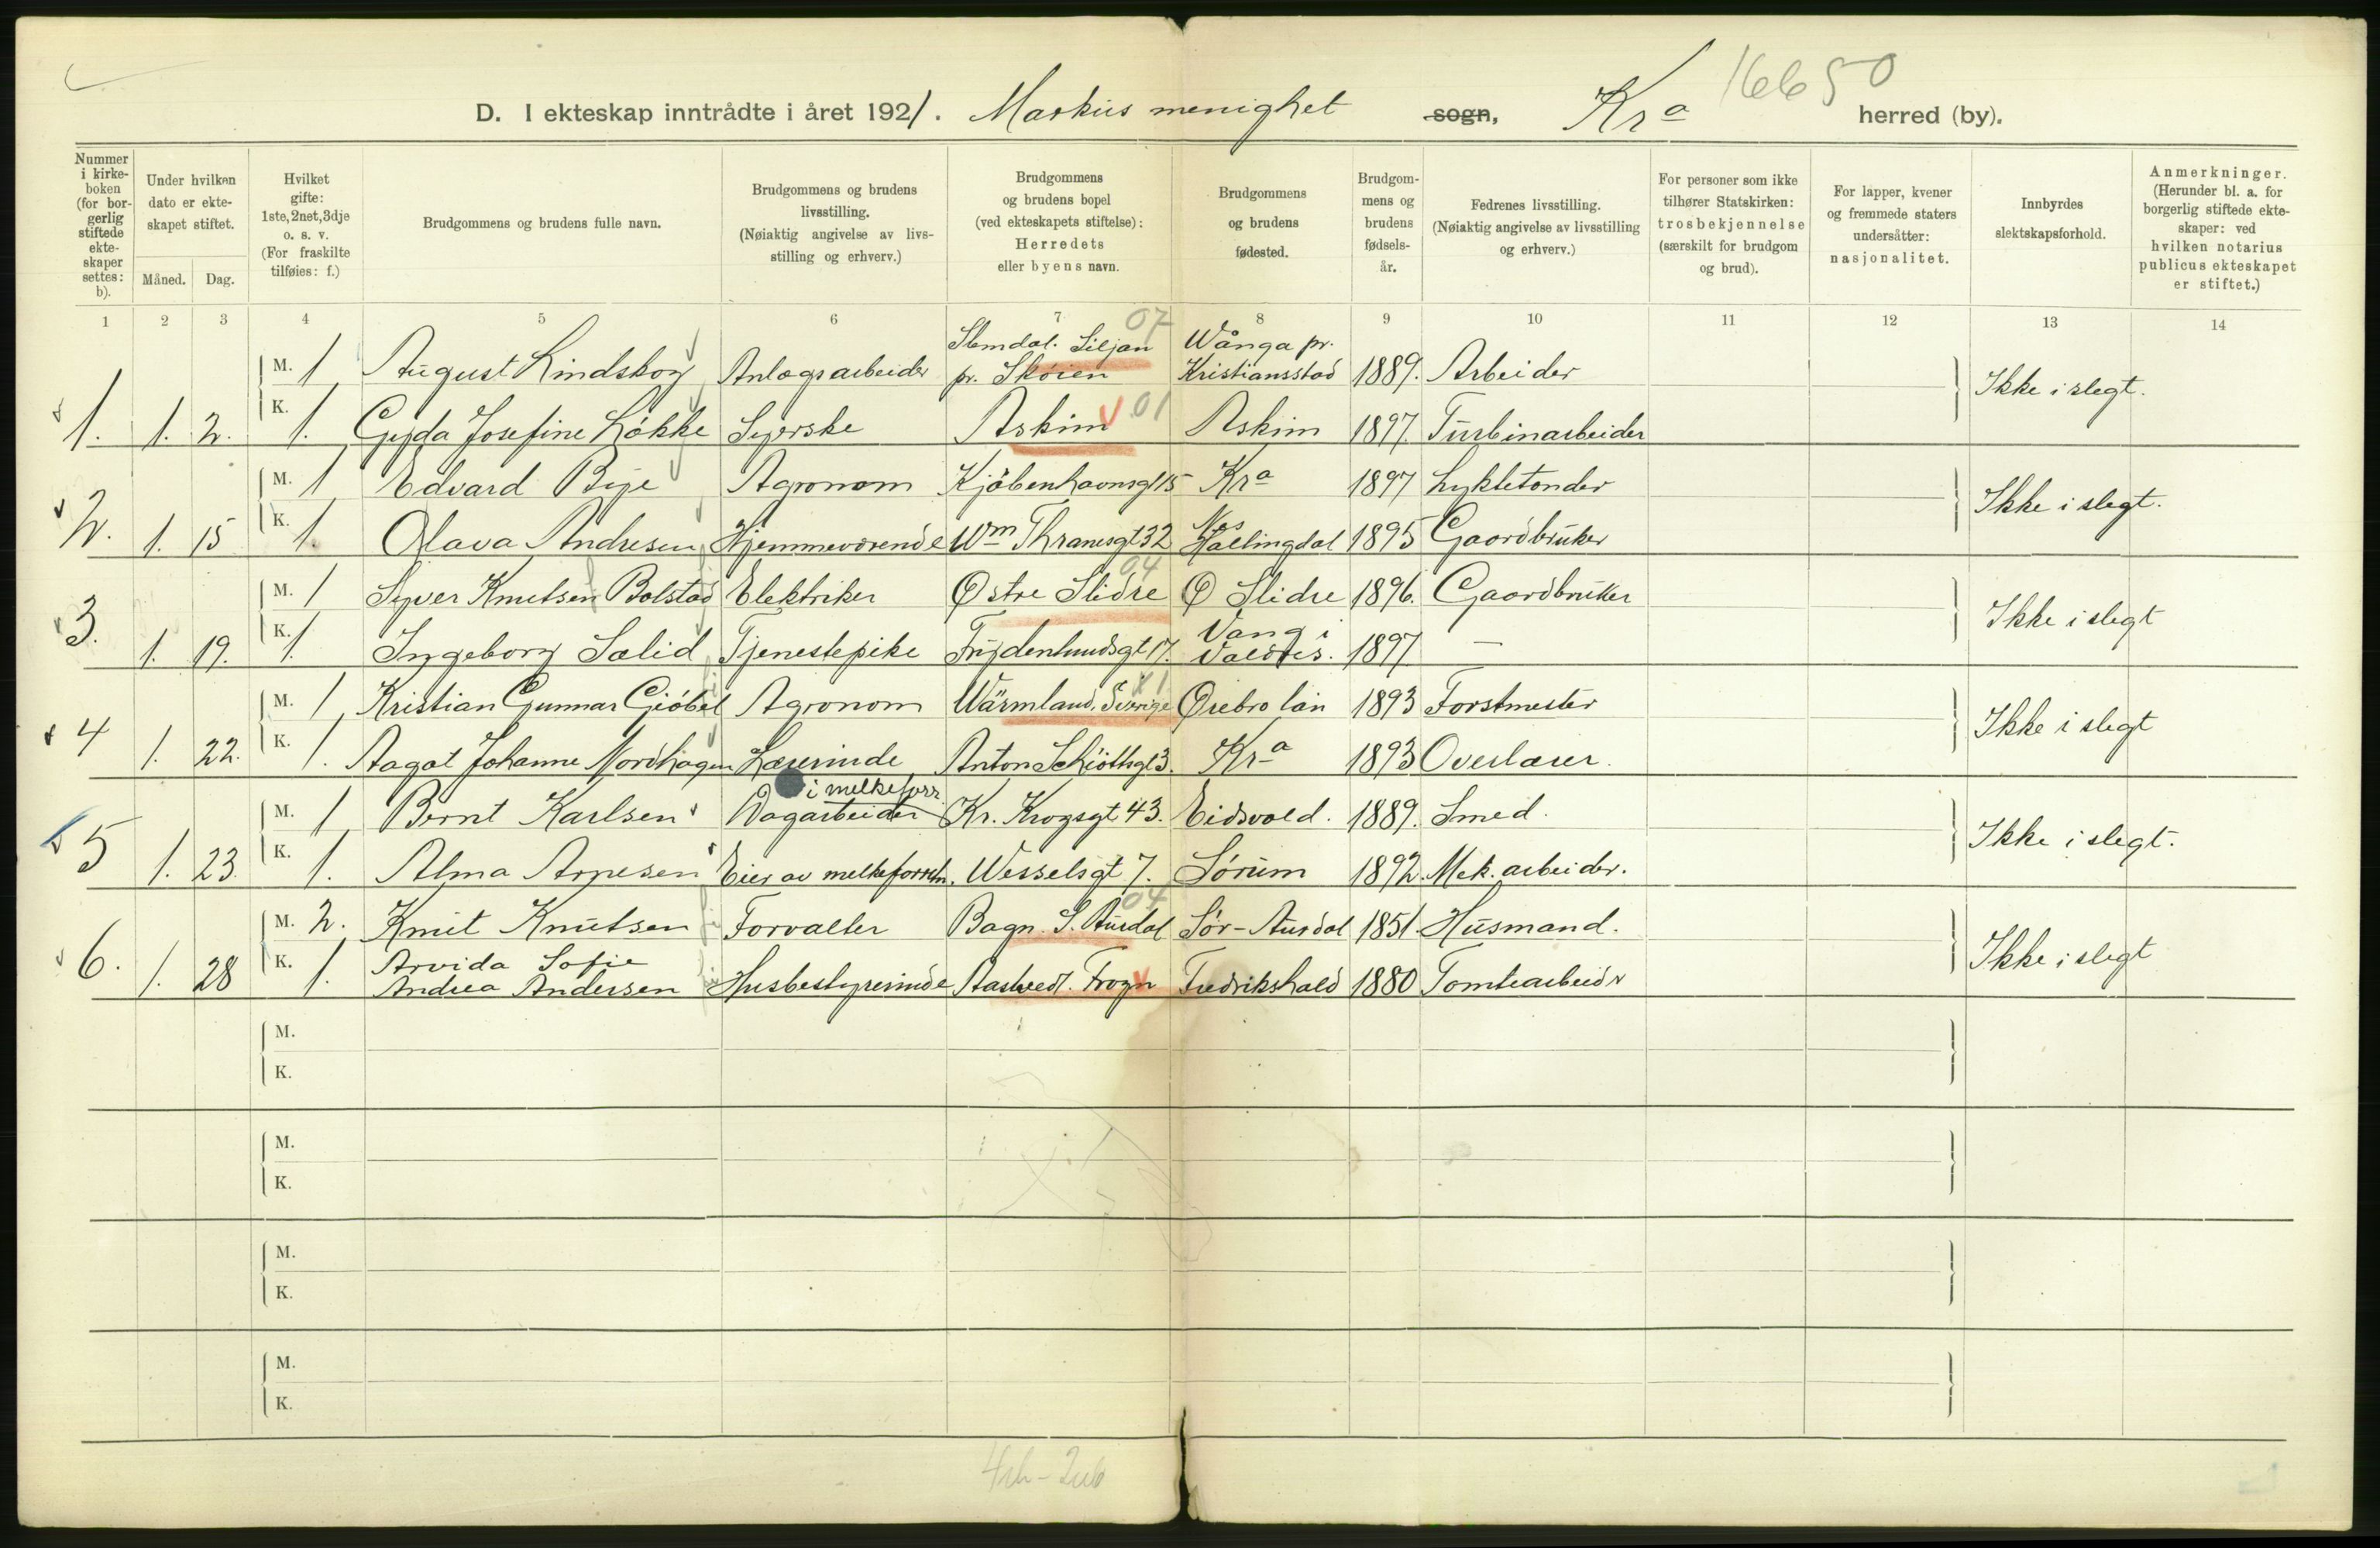 16650
D. I ekteskap inntrådte i året 1921. Markus menighet sogn, Kra herred (by).
Nummer i kirke-boken (for bor-gerlig stiftede ekte-skaper settes: b).
Under hvilken dato er ekte-skapet stiftet.
Måned. Dag.
Hvilket gifte: 1ste, 2net, 3dje o. s. v. (For fraskilte tilføies: f.)
Brudgommens og brudens fulle navn.
Brudgommens og brudens livsstilling. (Nøiaktig angivelse av livs-stilling og erhverv.)
Brudgommens og brudens bopel (ved ekteskapets stiftelse): Herredets eller byens navn.
Brudgommens og brudens fødested.
Brudgom-mens og brudens fødsels-år.
Fedrenes livsstilling. (Nøiaktig angivelse av livsstilling og erhverv.)
For personer som ikke tilhører Statskirken: trosbekjennelse (særskilt for brudgom og brud).
For lapper, kvener og fremmede staters undersåtter: nasjonalitet.
Innbyrdes slektskapsforhold.
Anmerkninger. (Herunder bl. a. for borgerlig stiftede ekte-skaper: ved hvilken notarius publicus ekteskapet er stiftet.)
1 2 3 4 5 6 7 8 9 10 11 12 13 14
07
M. 1 August Lindskog Anlægsarbeider Slemdal. Siljan pr. Skoien Wånga pr. Kristiansstad 1889. Arbeider
Ikke i slegt.
1. 1. 2. K. 1. Gyda Josefine Løkke Syerske Askim 01 Askim 1897. Turbinarbeider
M. 1 Edvard Bye Agronom Kjøbenhavnsgt 15 Kra 1897 Lyktetender
Ikke i slegt.
2. 1. 15 K. 1. Olava Andresen Hjemmeværende Wm Thranesgt 32 Nes Hallingdal 1895 Gaardbruker
04
M. 1 Syver Knutsen Bolstad Elektriker Østre Slidre Ø Slidre 1896. Gaardbruker
Ikke i slegt
3. 1. 19. K. 1. Ingeborg Sælid Tjenestepike Frydenlundsgt 17. Vang i Valdres. 1897 —
M. 1 Kristian Gunnar Giöbel Agronom Wärmland, Sverige Örebro län 1893 Forstmester
Ikke i slegt
4 1. 22. K. 1. Aagot Johanne Nordhagen Lærerinde Anton Schiöthsgt 3. Kra 1893 Overlærer.
i melkeforr.
M. 1 Bernt Karlsen Dagarbeider Kr. Krogsgt 43. Eidsvold. 1889. Smed.
Ikke i slegt.
5 1. 23. K. 1. Alma Arnesen Eier av melkeforretn. Wesselsgt 7. Sørum 1892. Mek. arbeider.
04
M. 2. Knut Knutsen Forvalter Bagn. S. Aurdal Sør-Aurdal 1851. Husmand.
Ikke i slegt
6. 1. 28 K. 1. Arvida Sofie Andrea Andersen Husbestyrerinde Frogn Fredrikshald 1880 Tomtearbeider
M.
K.
M.
K.
M.
K.
M.
K.